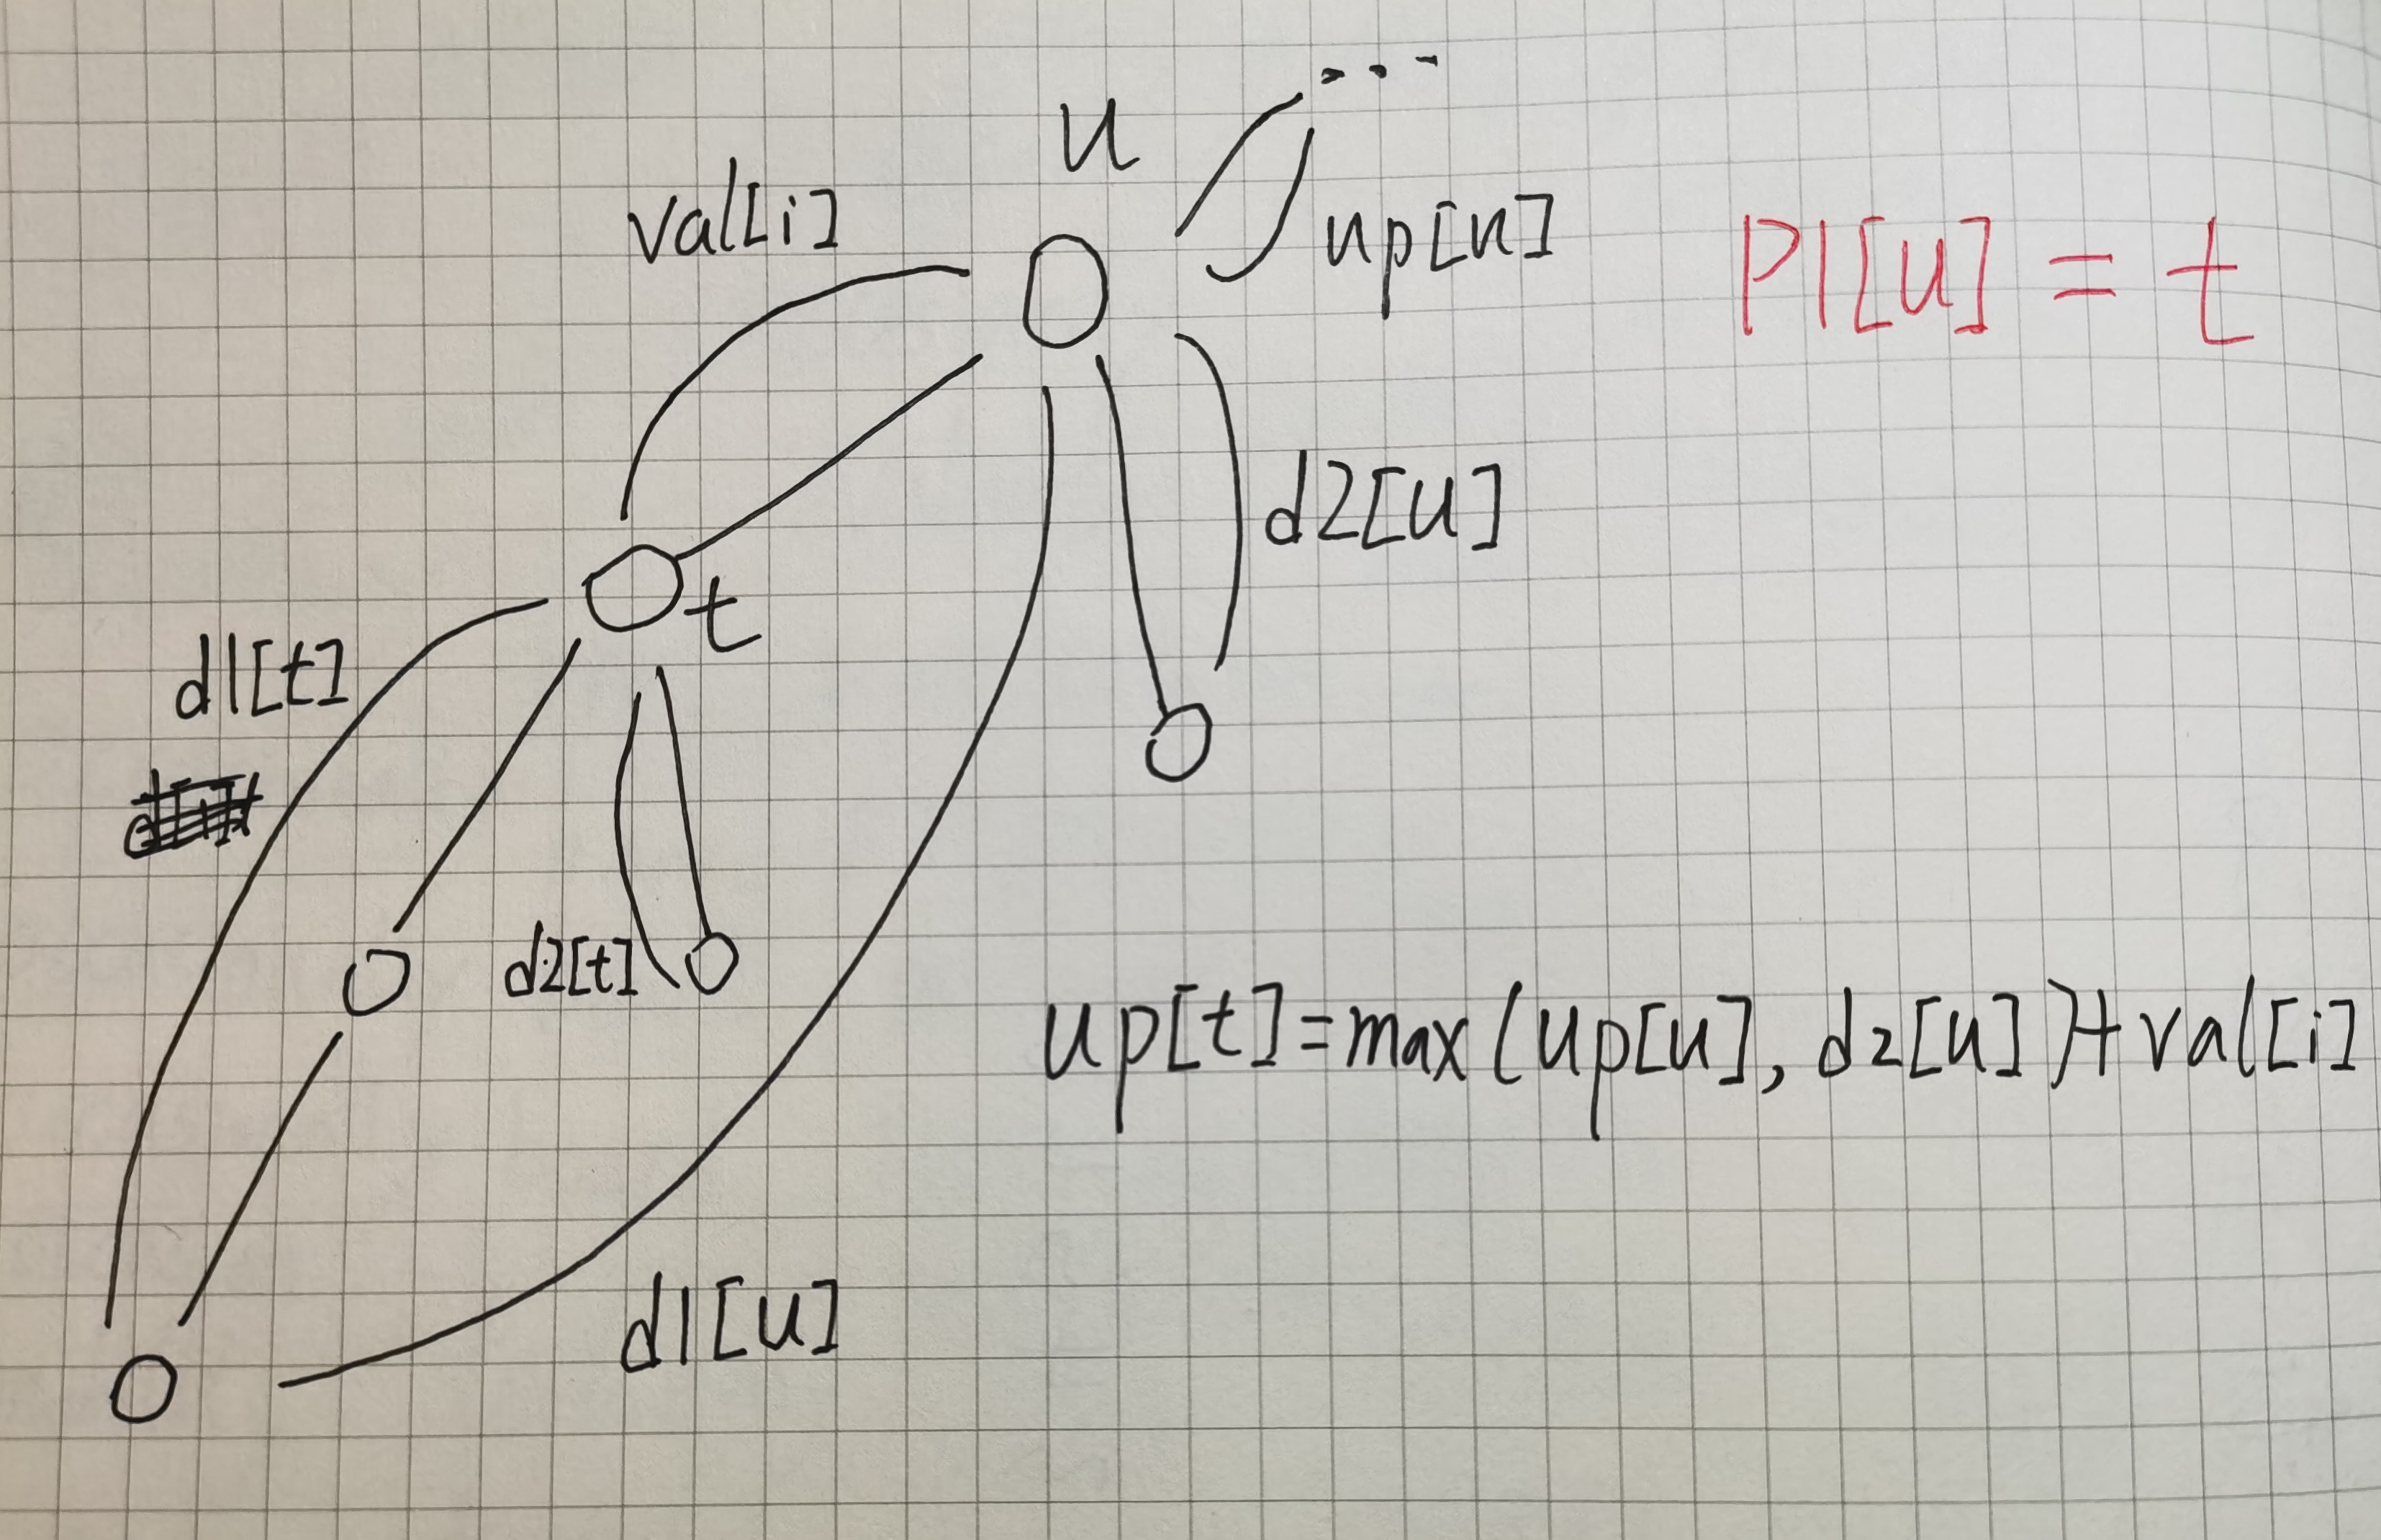 ...
u
val[i]
up[u]
P1[u] = t
d2[u]
t
d1[t]
d2[t]
up[t]=max(up[u], d2[u])+val[i]
d1[u]